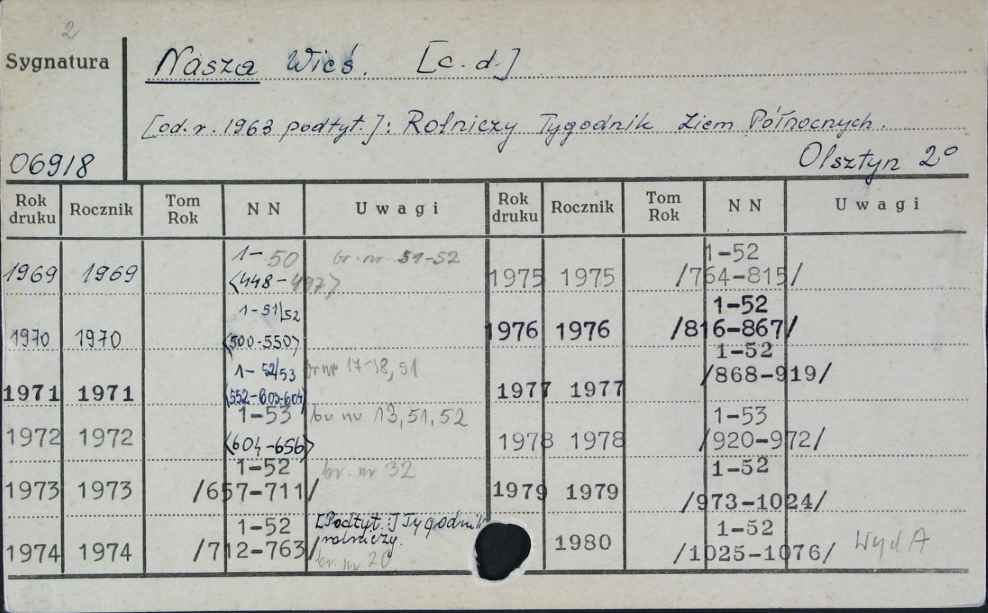 2
Sygnatura
Nasza Wieś. [c.d.]
[od.r. 1963 podtyt.]: Rolniczy Tygodnik Ziem Północnych.
06918 Olsztyn 2°
Rok druku Rocznik Tom Rok N N Uwagi Rok druku Rocznik Tom Rok N N Uwagi
1969 1969 1-50 <448-497> br. nr 51-52
1970 1970 1-51/52 <500-550>
1971 1971 1-52/53 <552-603-604> br nr 17-18, 51
1972 1972 1-53 <604-656> br nr 13, 51, 52
1973 1973 1-52 /657-711/ br. nr 32
1974 1974 1-52 /712-763/ [Podtyt.] Tygodnik rolniczy. br. nr 20
1975 1975 1-52 /764-815/
1976 1976 1-52 /816-867/
1977 1977 1-52 /868-919/
1978 1978 1-53 /920-972/
1979 1979 1-52 /973-1024/
1980 1-52 /1025-1076/ Wyd A